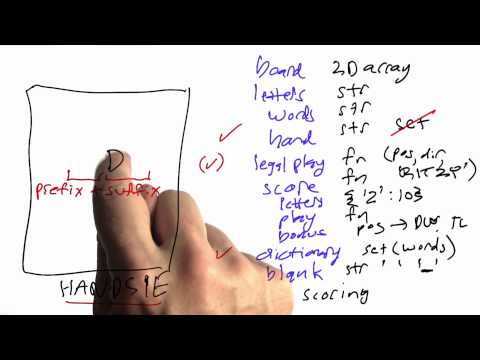 D
prefix + suffix
HANDSIE
board 2D array
letters str
words str
hand str set
legal play fn (pos, dir,
score fn
letters {'Z':10}
play fn
bonus pos → DW, TL
dictionary set(words)
blank str ' ' '_'
scoring